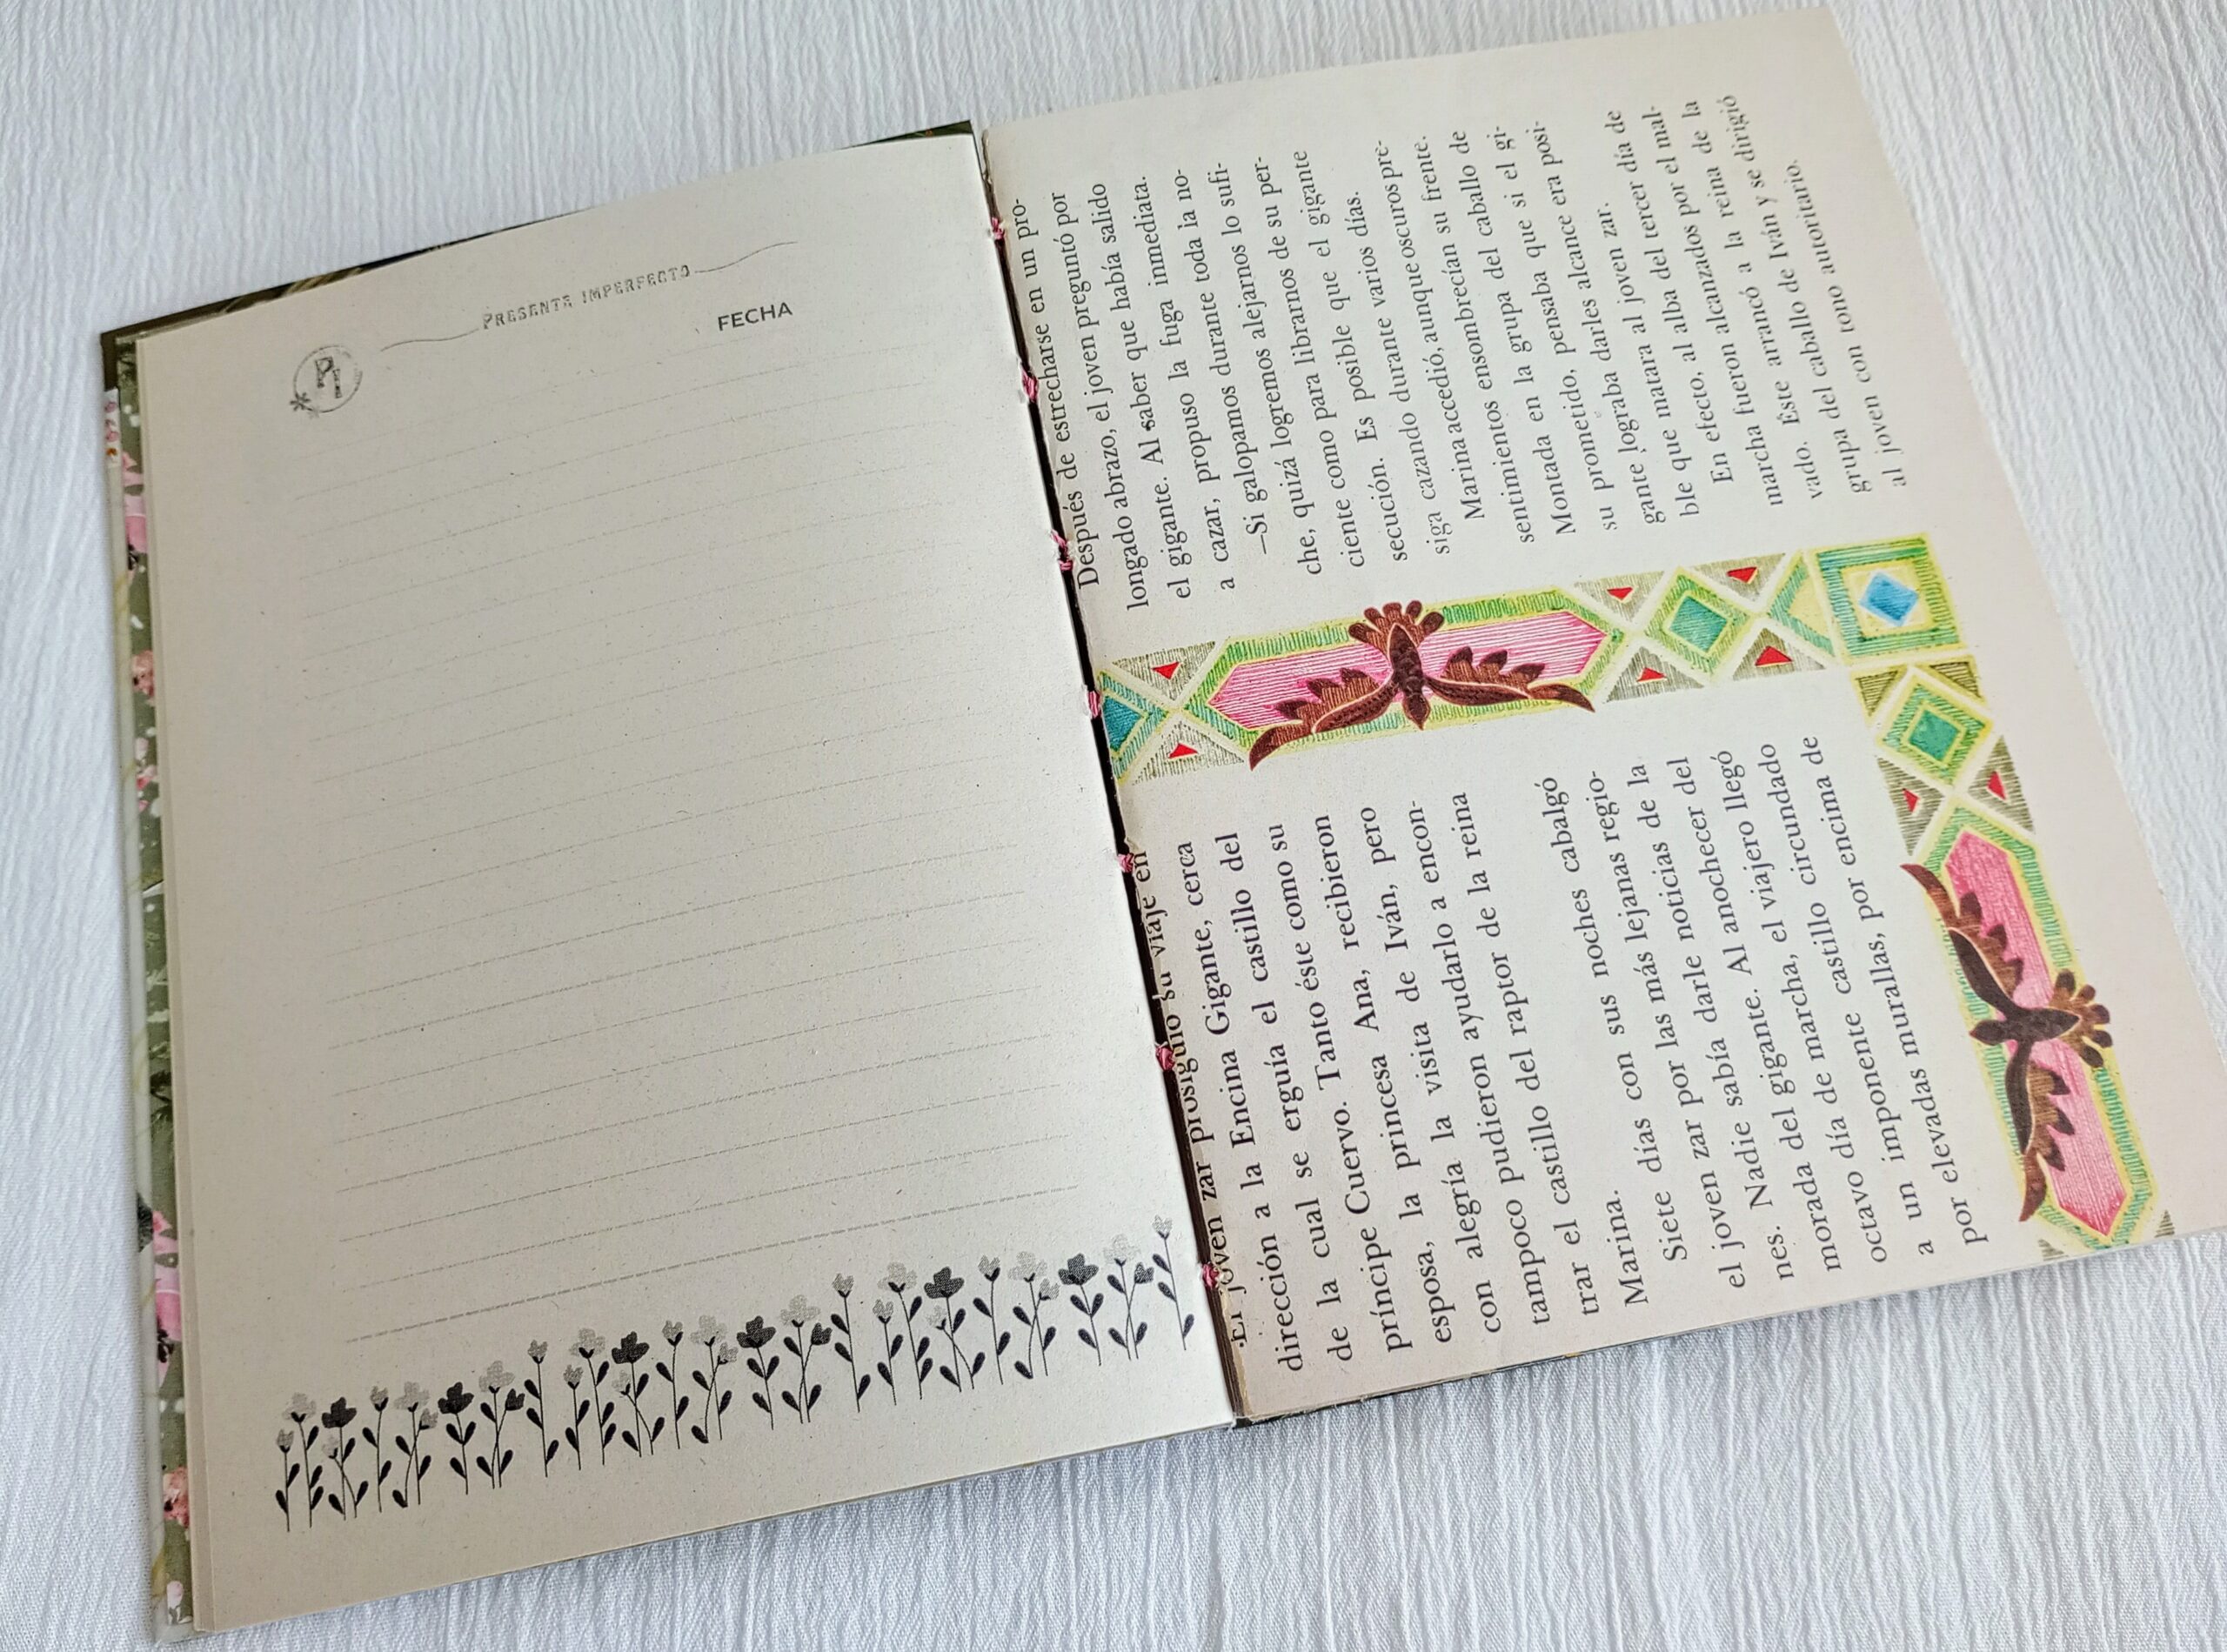 PI
PRESENTE IMPERFECTO
FECHA
El joven zar prosiguió su viaje en
dirección a la Encina Gigante, cerca
de la cual se erguía el castillo del
príncipe Cuervo. Tanto éste como su
esposa, la princesa Ana, recibieron
con alegría la visita de Iván, pero
tampoco pudieron ayudarlo a encon-
trar el castillo del raptor de la reina
Marina.
Siete días con sus noches cabalgó
el joven zar por las más lejanas regio-
nes. Nadie sabía darle noticias de la
morada del gigante. Al anochecer del
octavo día de marcha, el viajero llegó
a un imponente castillo circundado
por elevadas murallas, por encima de
Después de estrecharse en un pro-
longado abrazo, el joven preguntó por
el gigante. Al saber que había salido
a cazar, propuso la fuga inmediata.
—Si galopamos durante toda la no-
che, quizá logremos alejarnos lo sufi-
ciente como para librarnos de su per-
secución. Es posible que el gigante
siga cazando durante varios días.
Marina accedió, aunque oscuros pre-
sentimientos ensombrecían su frente.
Montada en la grupa del caballo de
su prometido, pensaba que si el gi-
gante lograba darles alcance era posi-
ble que matara al joven zar.
En efecto, al alba del tercer día de
marcha fueron alcanzados por el mal-
vado. Éste arrancó a la reina de la
grupa del caballo de Iván y se dirigió
al joven con tono autoritario.